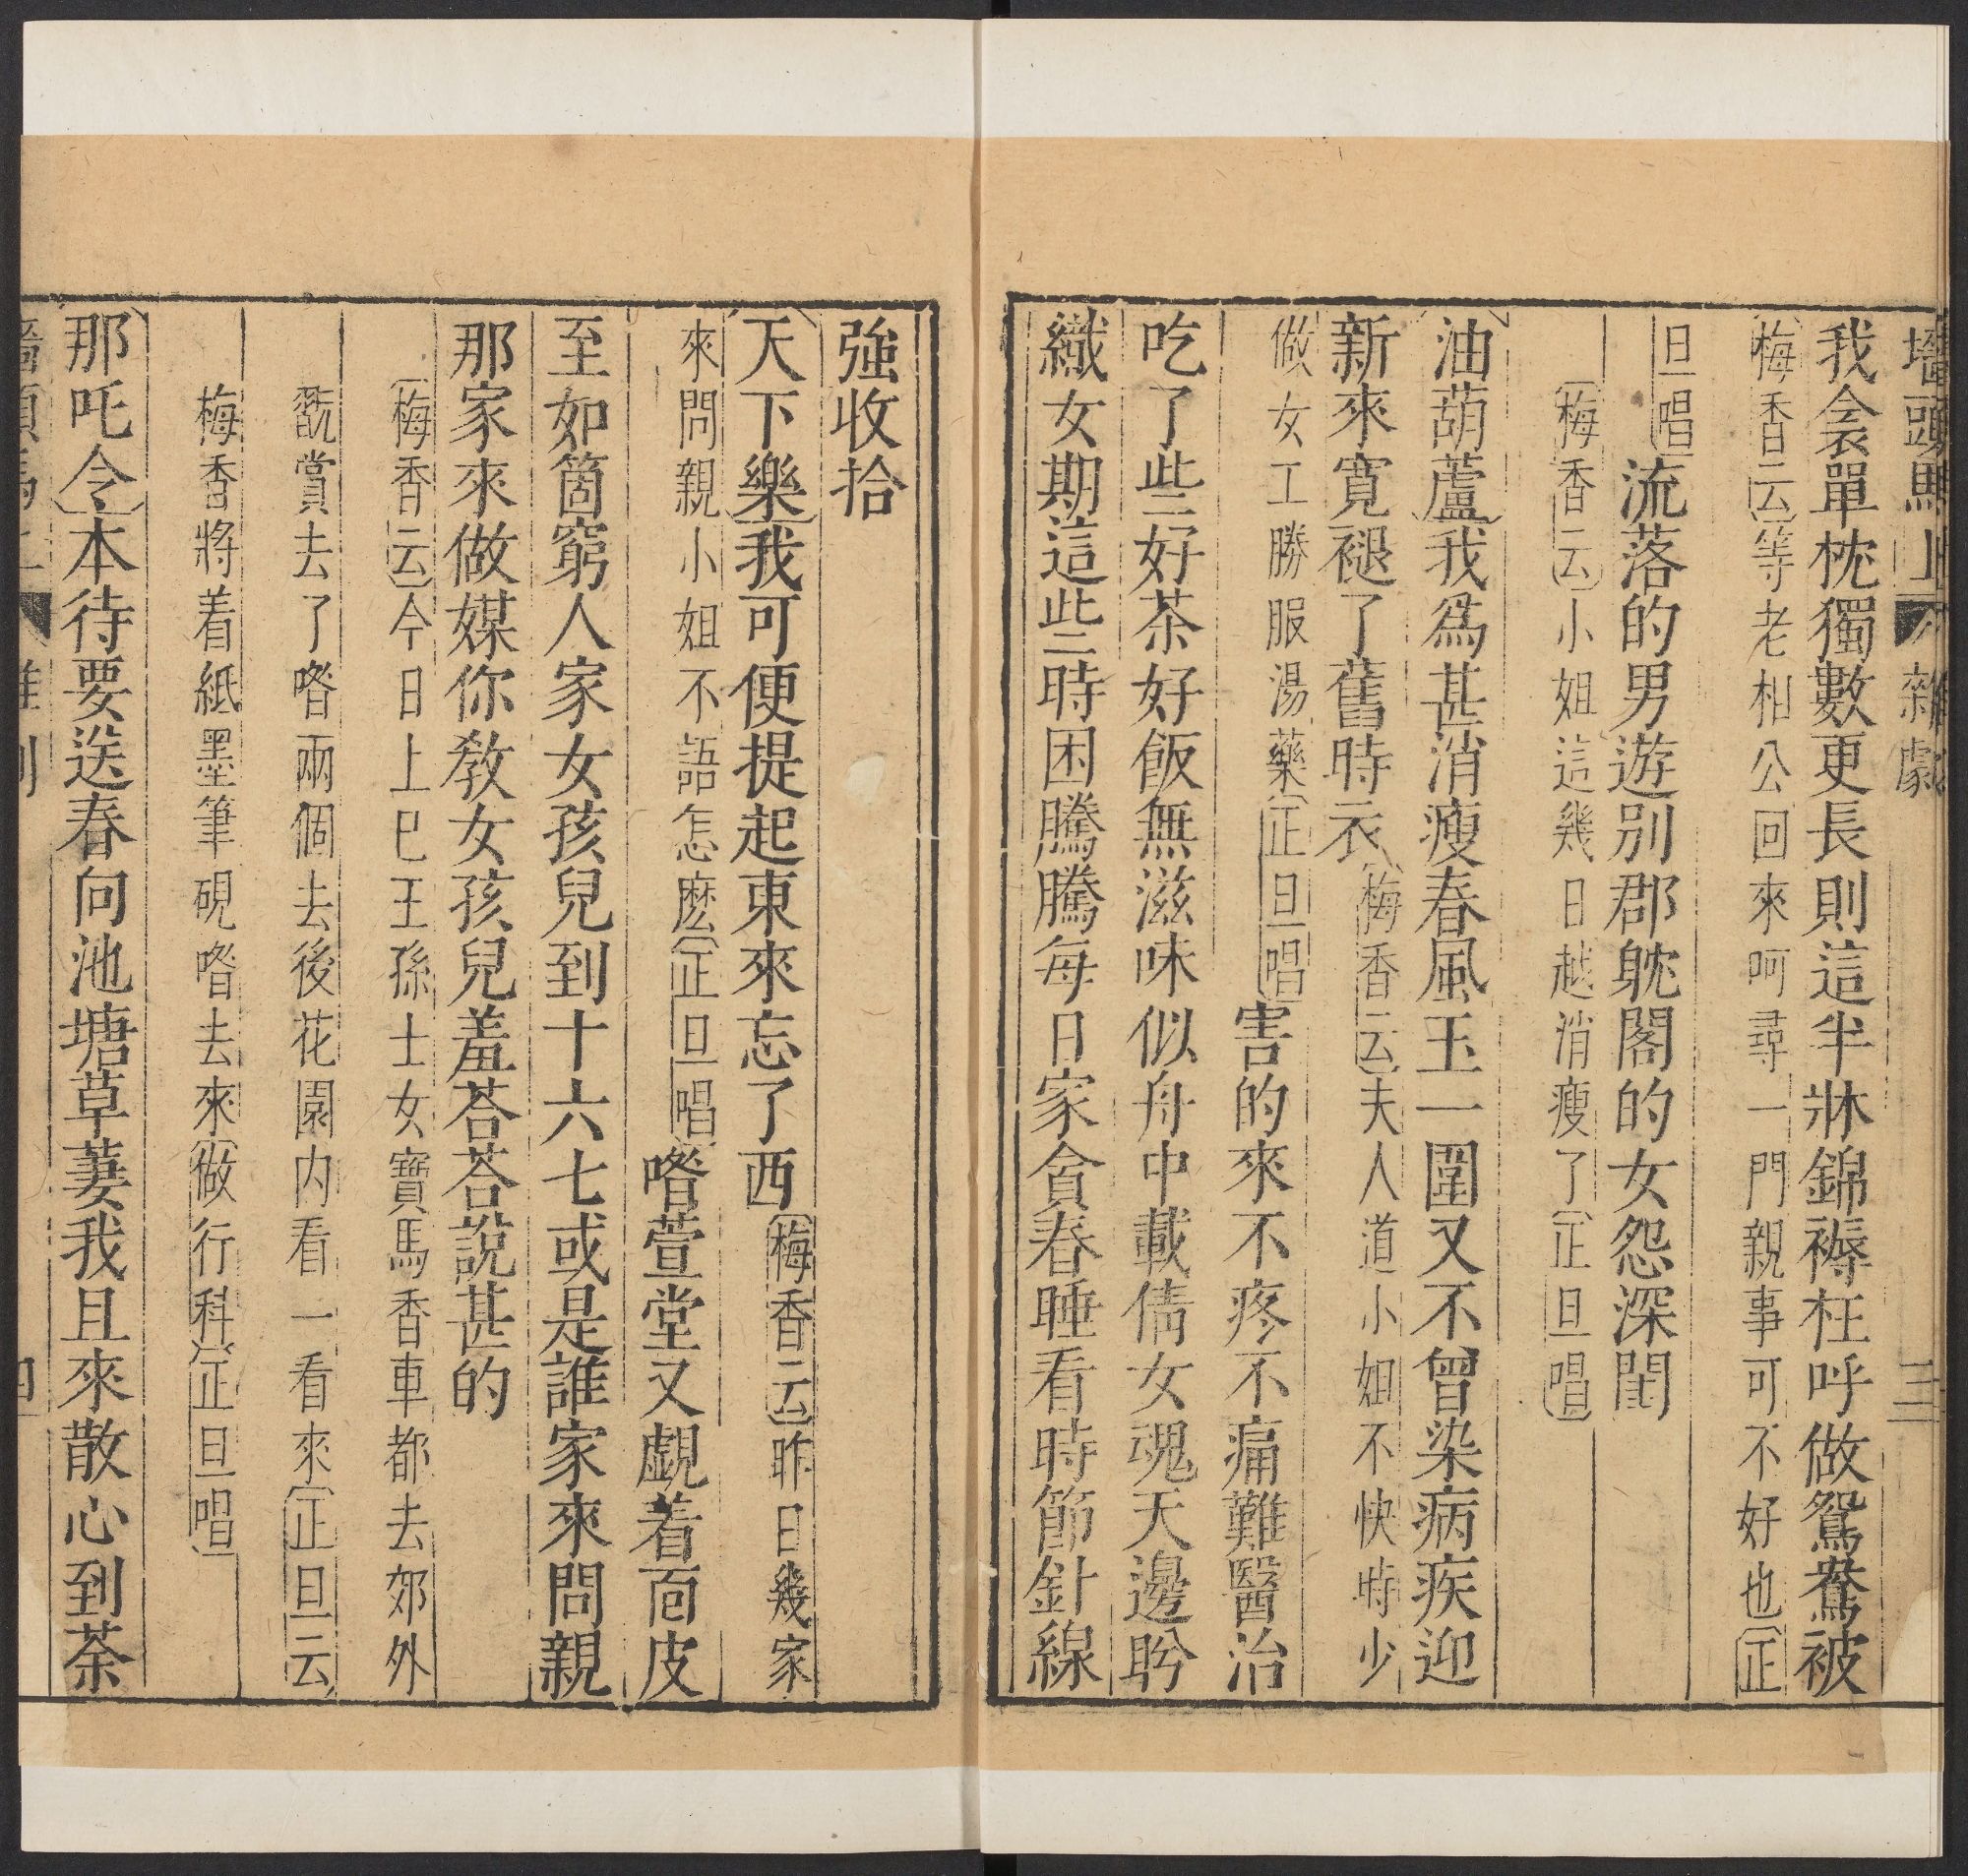 墻頭馬上 雜劇 三
我衾單枕獨數更長則這半牀錦褥枉呼做鴛鴦被
梅香云等老相公回來呵尋一門親事可不好也正
旦唱流落的男遊別郡躭閣的女怨深閨
梅香云小姐這幾日越消瘦了正旦唱
油葫蘆我爲甚消瘦春風玉一圍又不曾染病疾迎
新來寬褪了舊時衣梅香云夫人道小姐不快時少
做女工勝服湯藥正旦唱害的來不疼不痛難醫治
吃了些好茶好飯無滋味似舟中載倩女魂天邊盻
織女期這些時困騰騰每日家貪春睡看時節針線
強收拾
天下樂我可便提起東來忘了西梅香云昨日幾家
來問親小姐不語怎麽正旦唱喒萱堂又覷着面皮
至如箇窮人家女孩兒到十六七或是誰家來問親
那家來做媒你教女孩兒羞荅荅說甚的
梅香云今日上巳王孫士女寶馬香車都去郊外
翫賞去了喒兩個去後花園内看一看來正旦云
梅香將着紙墨筆硯喒去來做行科正旦唱
那吒令本待要送春向池塘草萋我且來散心到荼